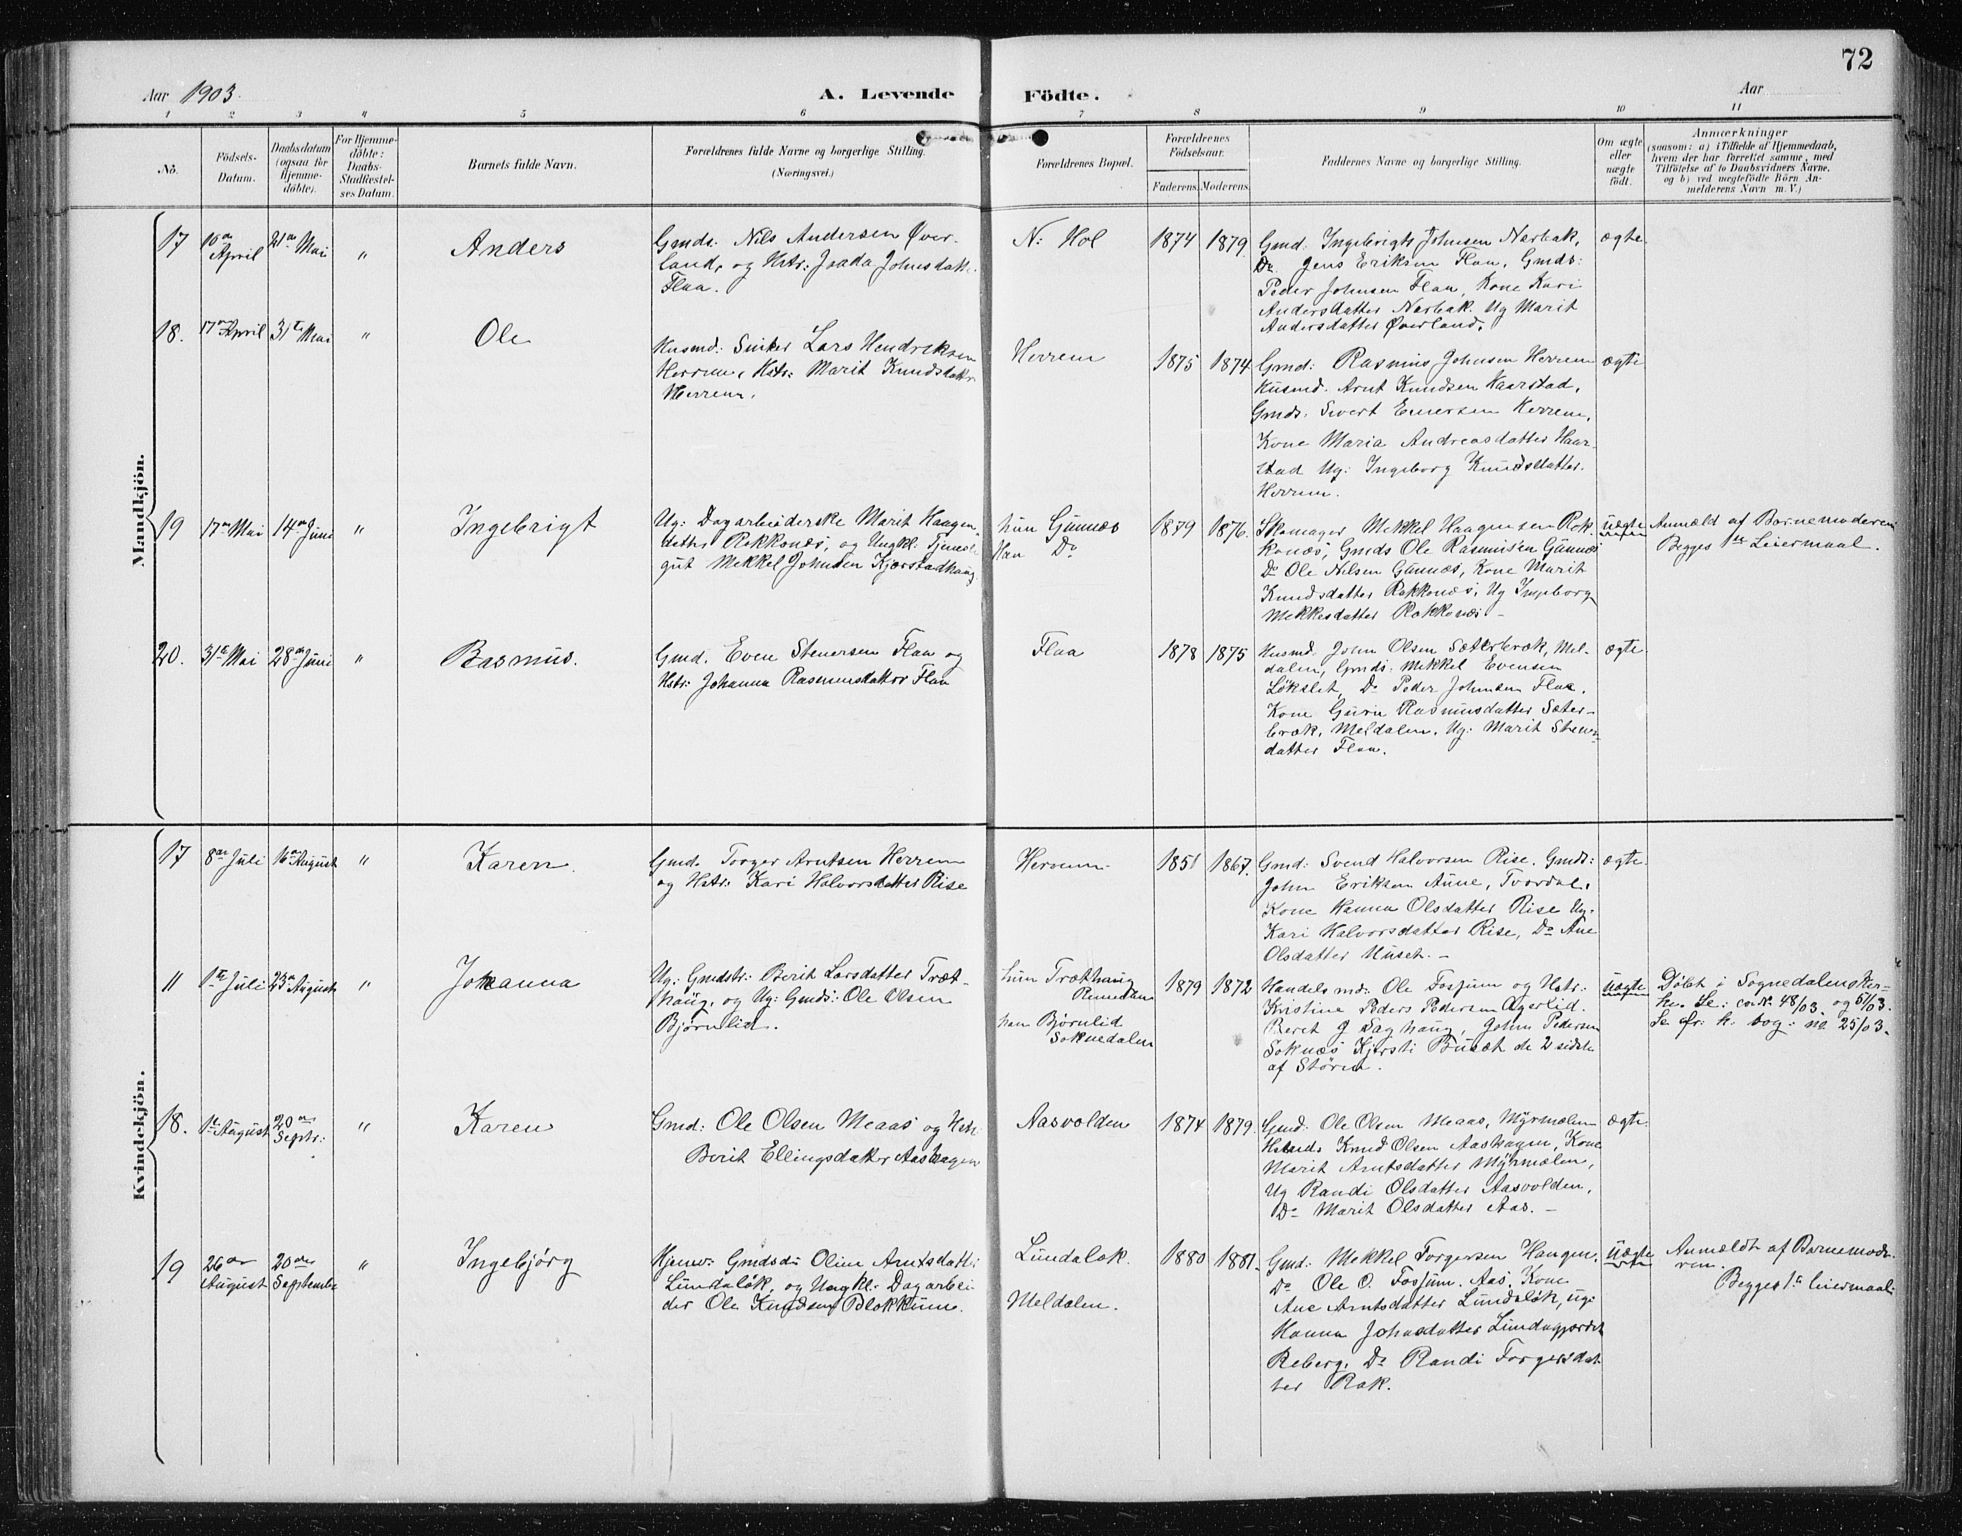 72
Aar 1903.
A. Levende Födte.
Aar
1 2 3 4 5 6 7 8 9 10 11
No.
Födsels-
Datum.
Daabsdatum
(ogsaa for
Hjemme-
döbte).
For Hjemme-
döbte:
Daabs-
Stadfæstel-
ses Datum.
Barnets fulde Navn.
Forældrenes fulde Navne og borgerlige Stilling.
(Næringsvei.)
Forældrenes Bopæl.
Forældrenes
Födselsaar.
Faderens. Moderens.
Faddernes Navne og borgerlige Stilling.
Om ægte
eller
uægte
födt.
Anmærkninger
(saasom: a) i Tilfælde af Hjemmedaab,
hvem der har forrettet samme, med
Tilföielse af to Daabsvidners Navne.
og b) ved uægtefödte Börn An-
melderens Navn m. V.)
Mandkjön.
17 10de April 21de Mai " Anders
Gmds. Nils Andersen Øver-
land, og Hstr: Joada Johnsdatt.
Flaa.
N: Hol
1874 1879
Gmd. Ingebrigt Johnsen Narbak,
Do. Jens Eriksen Flaa, Gmds:
Peder Johnsen Flaa, Kone Kari
Andersdatter Narbak. Ug Marit
Andersdatter Øverland.
ægte
18. 17de April 31te Mai " Ole
Husmd: Sniker Lars Hendriksen
Herrem, Hstr: Marit Knudsdatter
Herrem.
Herrem
1875 1874
Gmd: Rasmus Johnsen Herrem
Husmd. Arnt Knudsen Haarstad,
Gmds: Sivert Einersen Herrem,
Kone Maria Andreasdatter Haar-
stad Ug: Ingeborg Knudsdatter
Herrem.
ægte
19 17de Mai 14de Juni " Ingebrigt
Ug: Dagarbeiderske Marit Haagen
datter Rokkonæs, og Ungkl: Tjeneste
gut Mekkel Johnsen Kjærstadhaug
hun Gunnæs
han Do
1879 1876.
Skomager Mekkel Haagensen Rok-
konæs, Gmds Ole Rasmusen Gunnæs
Do Ole Nilsen Gunnæs, Kone Marit
Knudsdatter Rokkonæs, Ug Ingeborg
Mekkelsdatter Rokkonæs -
uægte
Anmeldt af Barnemoderen
Begges 1ste Leiermaal.
20. 31te Mai 28de Juni " Rasmus.
Gmd. Even Stenersen Flaa og
Hstr: Johanna Rasmusdatter Flaa
Flaa
1878 1875
Husmd. John Olsen Sæterbræk, Mel-
dalen, Gmds: Mekkel Evensen
Løkslet, Do Peder Johnsen Flaa.
Kone Guru Rasmusdatter Sæter-
bræk, Meldalen, Ug: Marit Steners-
datter Flaa.
ægte
Kvindekjön.
17 8de Juli 16de August " Karen.
Gmd. Torger Arntsen Herrem
og Hstr: Kari Halvorsdatter Rise
Herrem
1851 1867.
Gmd: Svend Halvorsen Rise. Gmds:
John Eriksen Aune, Tvordal,
Kone Hanna Olsdatter Rise Ug.
Kari Halvorsdatter Rise, Do Ane
Olsdatter Huset. -
ægte
11 1te Juli 23de August " Johanna
Ug: Gmdstr: Berit Larsdatter Træt-
haug, og Ug: Gmds: Ole Olsen
Bjørnlid.
hun Trøthaug
Rennebu
han Bjørnlid
Soknedalen
1879 1872
Handelsmd: Ole Fosjum og Hstr:
Kristine Peders Pedersen Agerlid.
Beret J Daghaug, John Pedersen
Soknæs Kjersti Busæt de 2 sidste
af Støren.
uægte
Døbt i Sognedalens Kir-
ke. Se: cor No. 48/03 og 51/03.
Se før: k. bog: no. 25/03.
18. 1te August 20de Septr: " Karen
Gmd: Ole Olsen Meaas og Hstr.
Berit Ellingsdatter Aashagen
Aasvolden
1874 1879.
Gmd: Ole Olsen Meaas, Myrmælen
Knud Olsen Aashagen, Kone
Marit Arntsdatter Myrmælen,
Ug Randi Olsdatter Aasvolden,
Do Marit Olsdatter Aas. -
ægte
19 26de August 20de September " Ingebjørg
Hjemv: Gmdsd: Oline Arntsdatt:
Lundaløk, og Ungkl: Dagarbei
der Ole Knudsen Blokkum.
Lundaløk.
Meldalen.
1880 1881.
Gmd: Mekkel Torgersen Haugen,
Do Ole O. Fosjum. Aas. Kone
Ane Arntsdatter Lundaløk, ug:
Hanna Johnsdatter Lundagjærdet
Reberg. Do Randi Torgersdat
ter Rok.
Uægte
Anmeldt af Barnemode-
ren.
Begges 1te leiermaal: